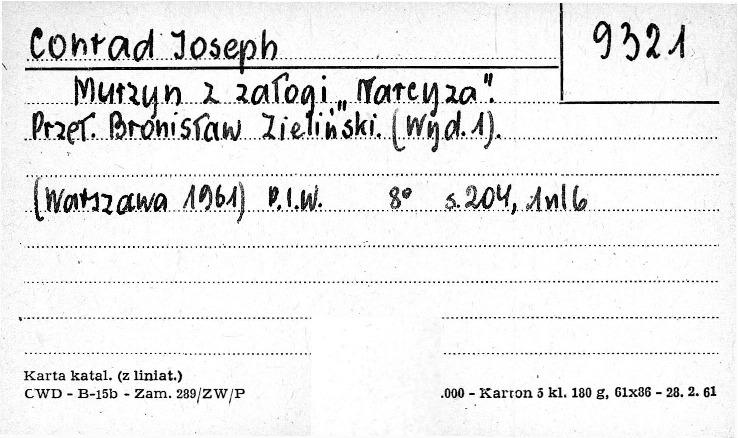 Conrad Joseph
9321
Murzyn z załogi „Narcyza".
Przeł. Bronisław Zieliński. (Wyd. 1).
(Warszawa 1961) P.I.W. 8° s. 204, 1nl b
Karta katal. (z liniat.)
CWD - B-15b - Zam. 289/ZW/P
.000 - Karton 5 kl. 180 g, 61x86 - 28. 2. 61